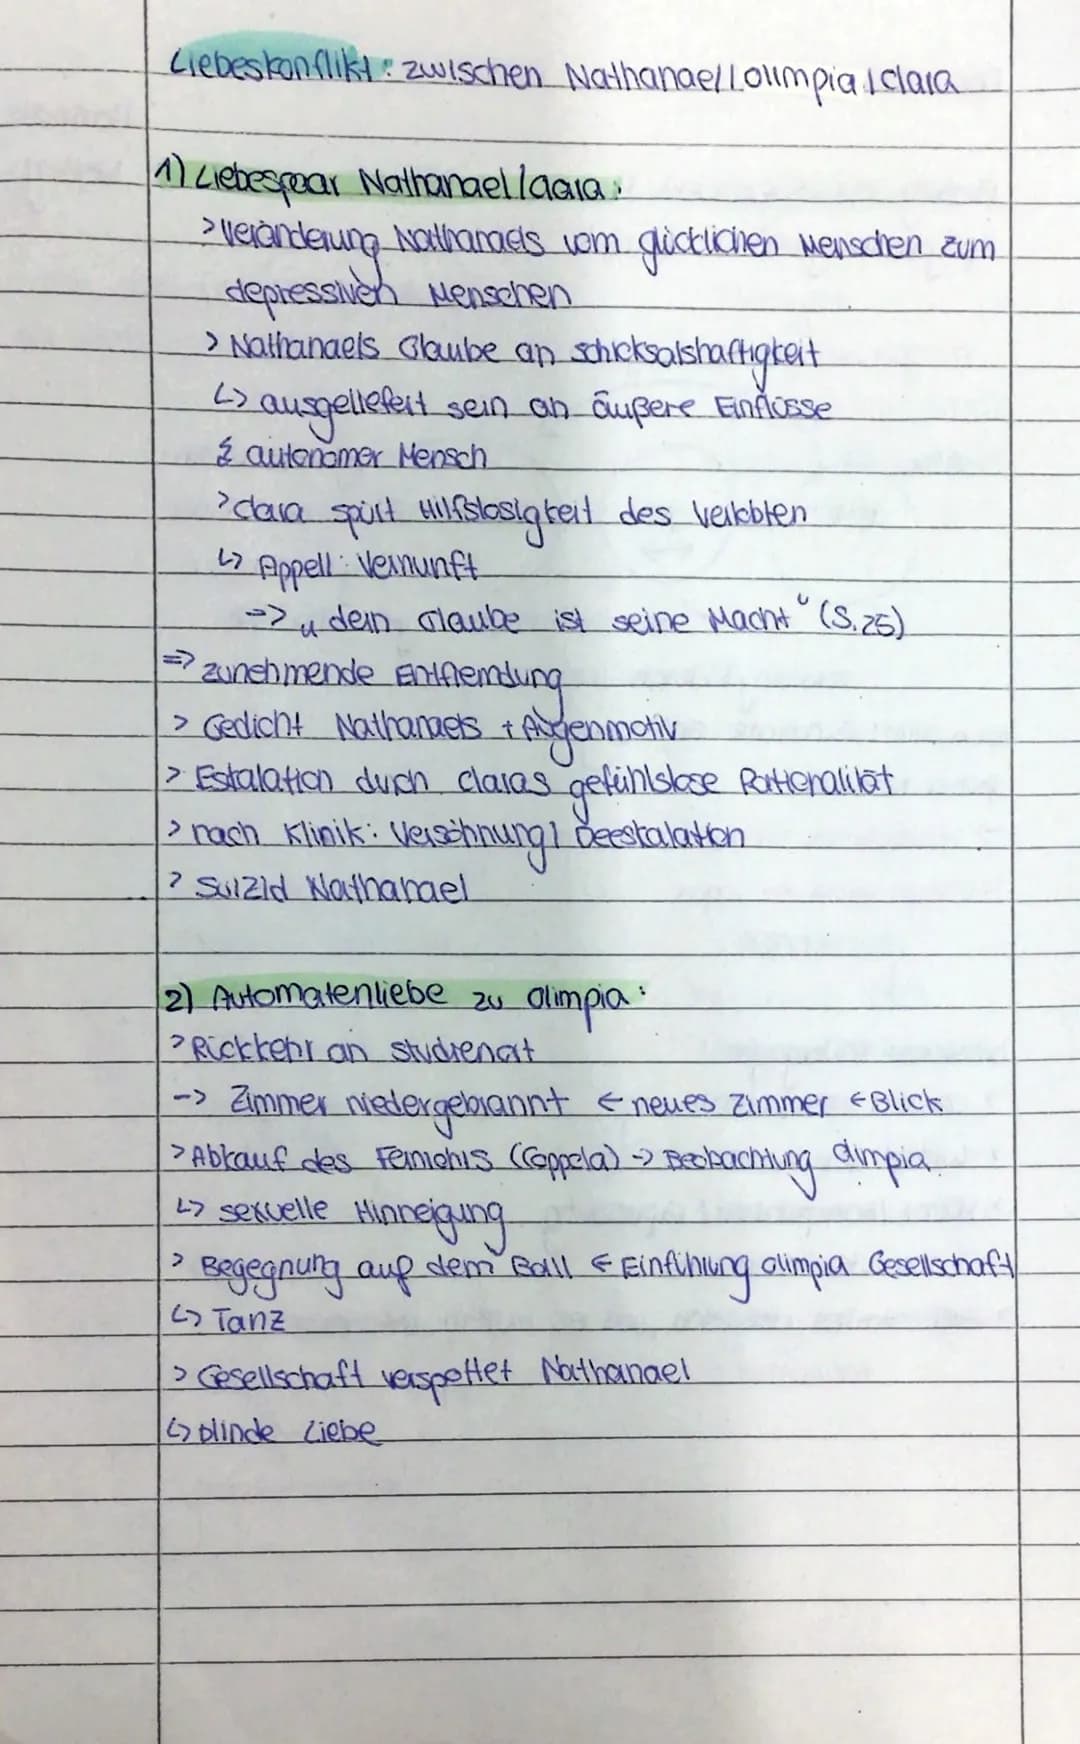 Liebeskonflikt: zwischen Nathanael/Olimpia/Clara
1) Liebespaar Nathanael/Clara:
> Veränderung Nathanaels vom glücklichen Menschen zum
depressiven Menschen
> Nathanaels Glaube an Schicksalshaftigkeit
↳ ausgeliefert sein an äußere Einflüsse
autonomer Mensch
> Clara spürt Hilfslosigkeit des Verlobten
↳ Appell: Vernunft
=> „dein Glaube ist seine Macht“ (S.25)
=> zunehmende Entfremdung
> Gedicht Nathanaels + Augenmotiv
> Eskalation durch Claras gefühlslose Rationalität
> nach Klinik: Versöhnung/Deeskalation
> Suizid Nathanael
2) Automatenliebe zu Olimpia:
> Rückkehr an Studienort
-> Zimmer niedergebrannt ← neues Zimmer ← Blick
> Abkauf des Fernrohrs (Coppola) -> Beobachtung Olimpia
↳ sexuelle Hinneigung
> Begegnung auf dem Ball ← Einführung Olimpia Gesellschaft
↳ Tanz
> Gesellschaft verspottet Nathanael
↳ blinde Liebe